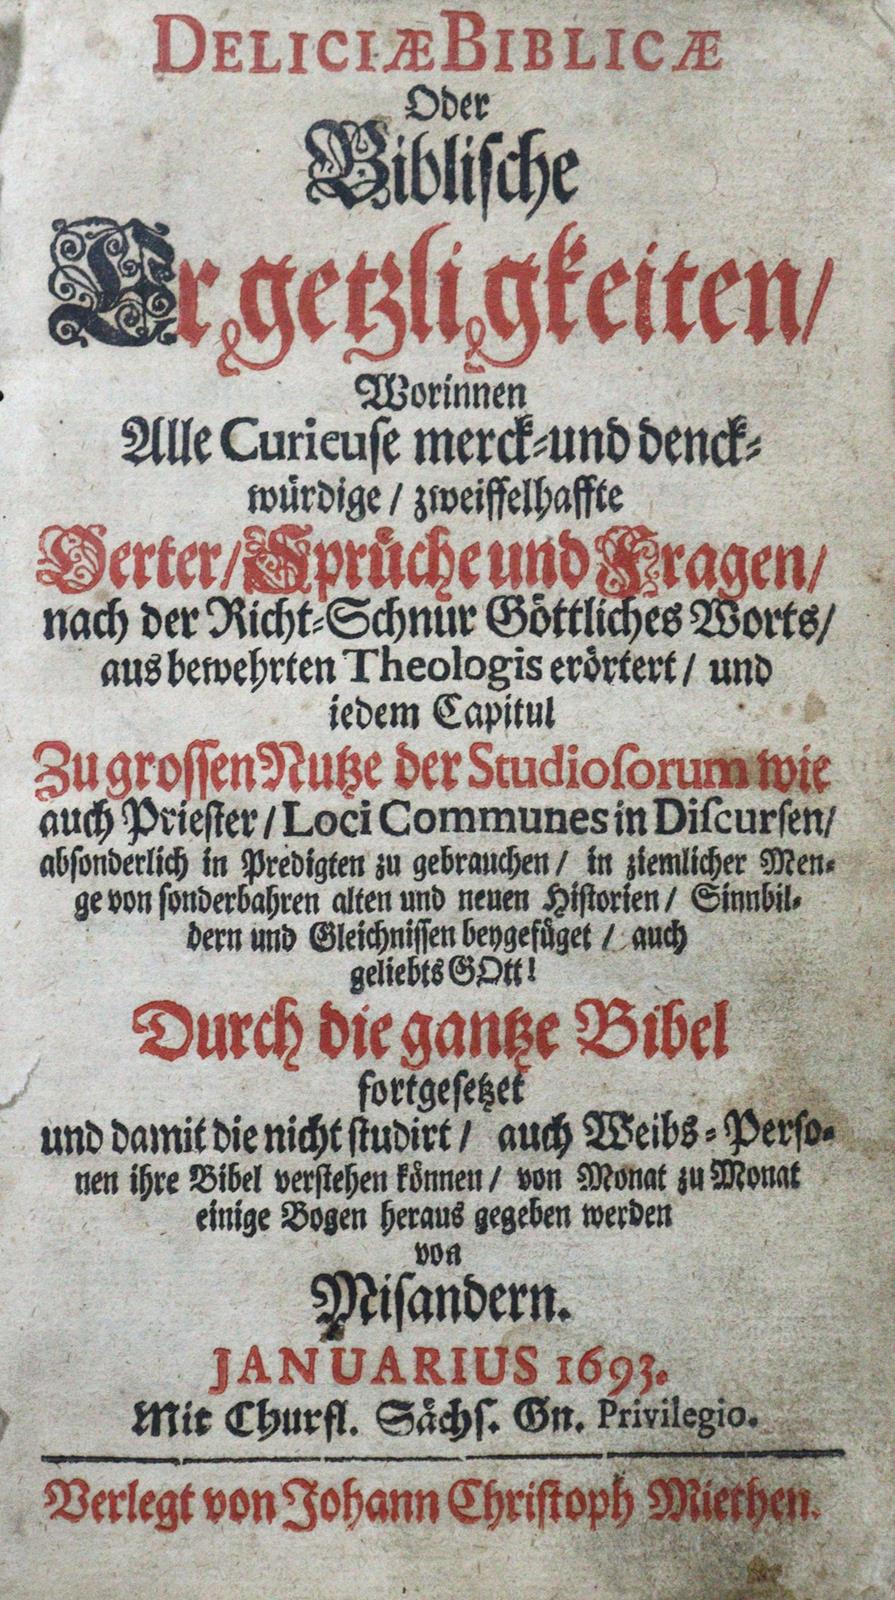 DELICIÆ BIBLICÆ
Oder
Bibliſche
Ergetzligkeiten/
Worinnen
Alle Curieuſe merck-und denck-
würdige / zweiffelhaffte
Oerter/ Sprüche und Fragen/
nach der Richt-Schnur Göttliches Worts/
aus bewehrten Theologis erörtert/ und
iedem Capitul
Zu groſſen Nutze der Studioſorum wie
auch Prieſter/ Loci Communes in Diſcurſen/
abſonderlich in Predigten zu gebrauchen/ in ziemlicher Men-
ge von ſonderbahren alten und neuen Hiſtorien/ Sinnbil-
dern und Gleichniſſen beygefüget / auch
geliebts GOtt!
Durch die gantze Bibel
fortgeſetzet
und damit die nicht ſtudirt/ auch Weibs-Perſo-
nen ihre Bibel verſtehen können/ von Monat zu Monat
einige Bogen heraus gegeben werden
von
Miſandern.
JANUARIUS 1693.
Mit Churfl. Sächſ. Gn. Privilegio.
Verlegt von Johann Chriſtoph Miethen.